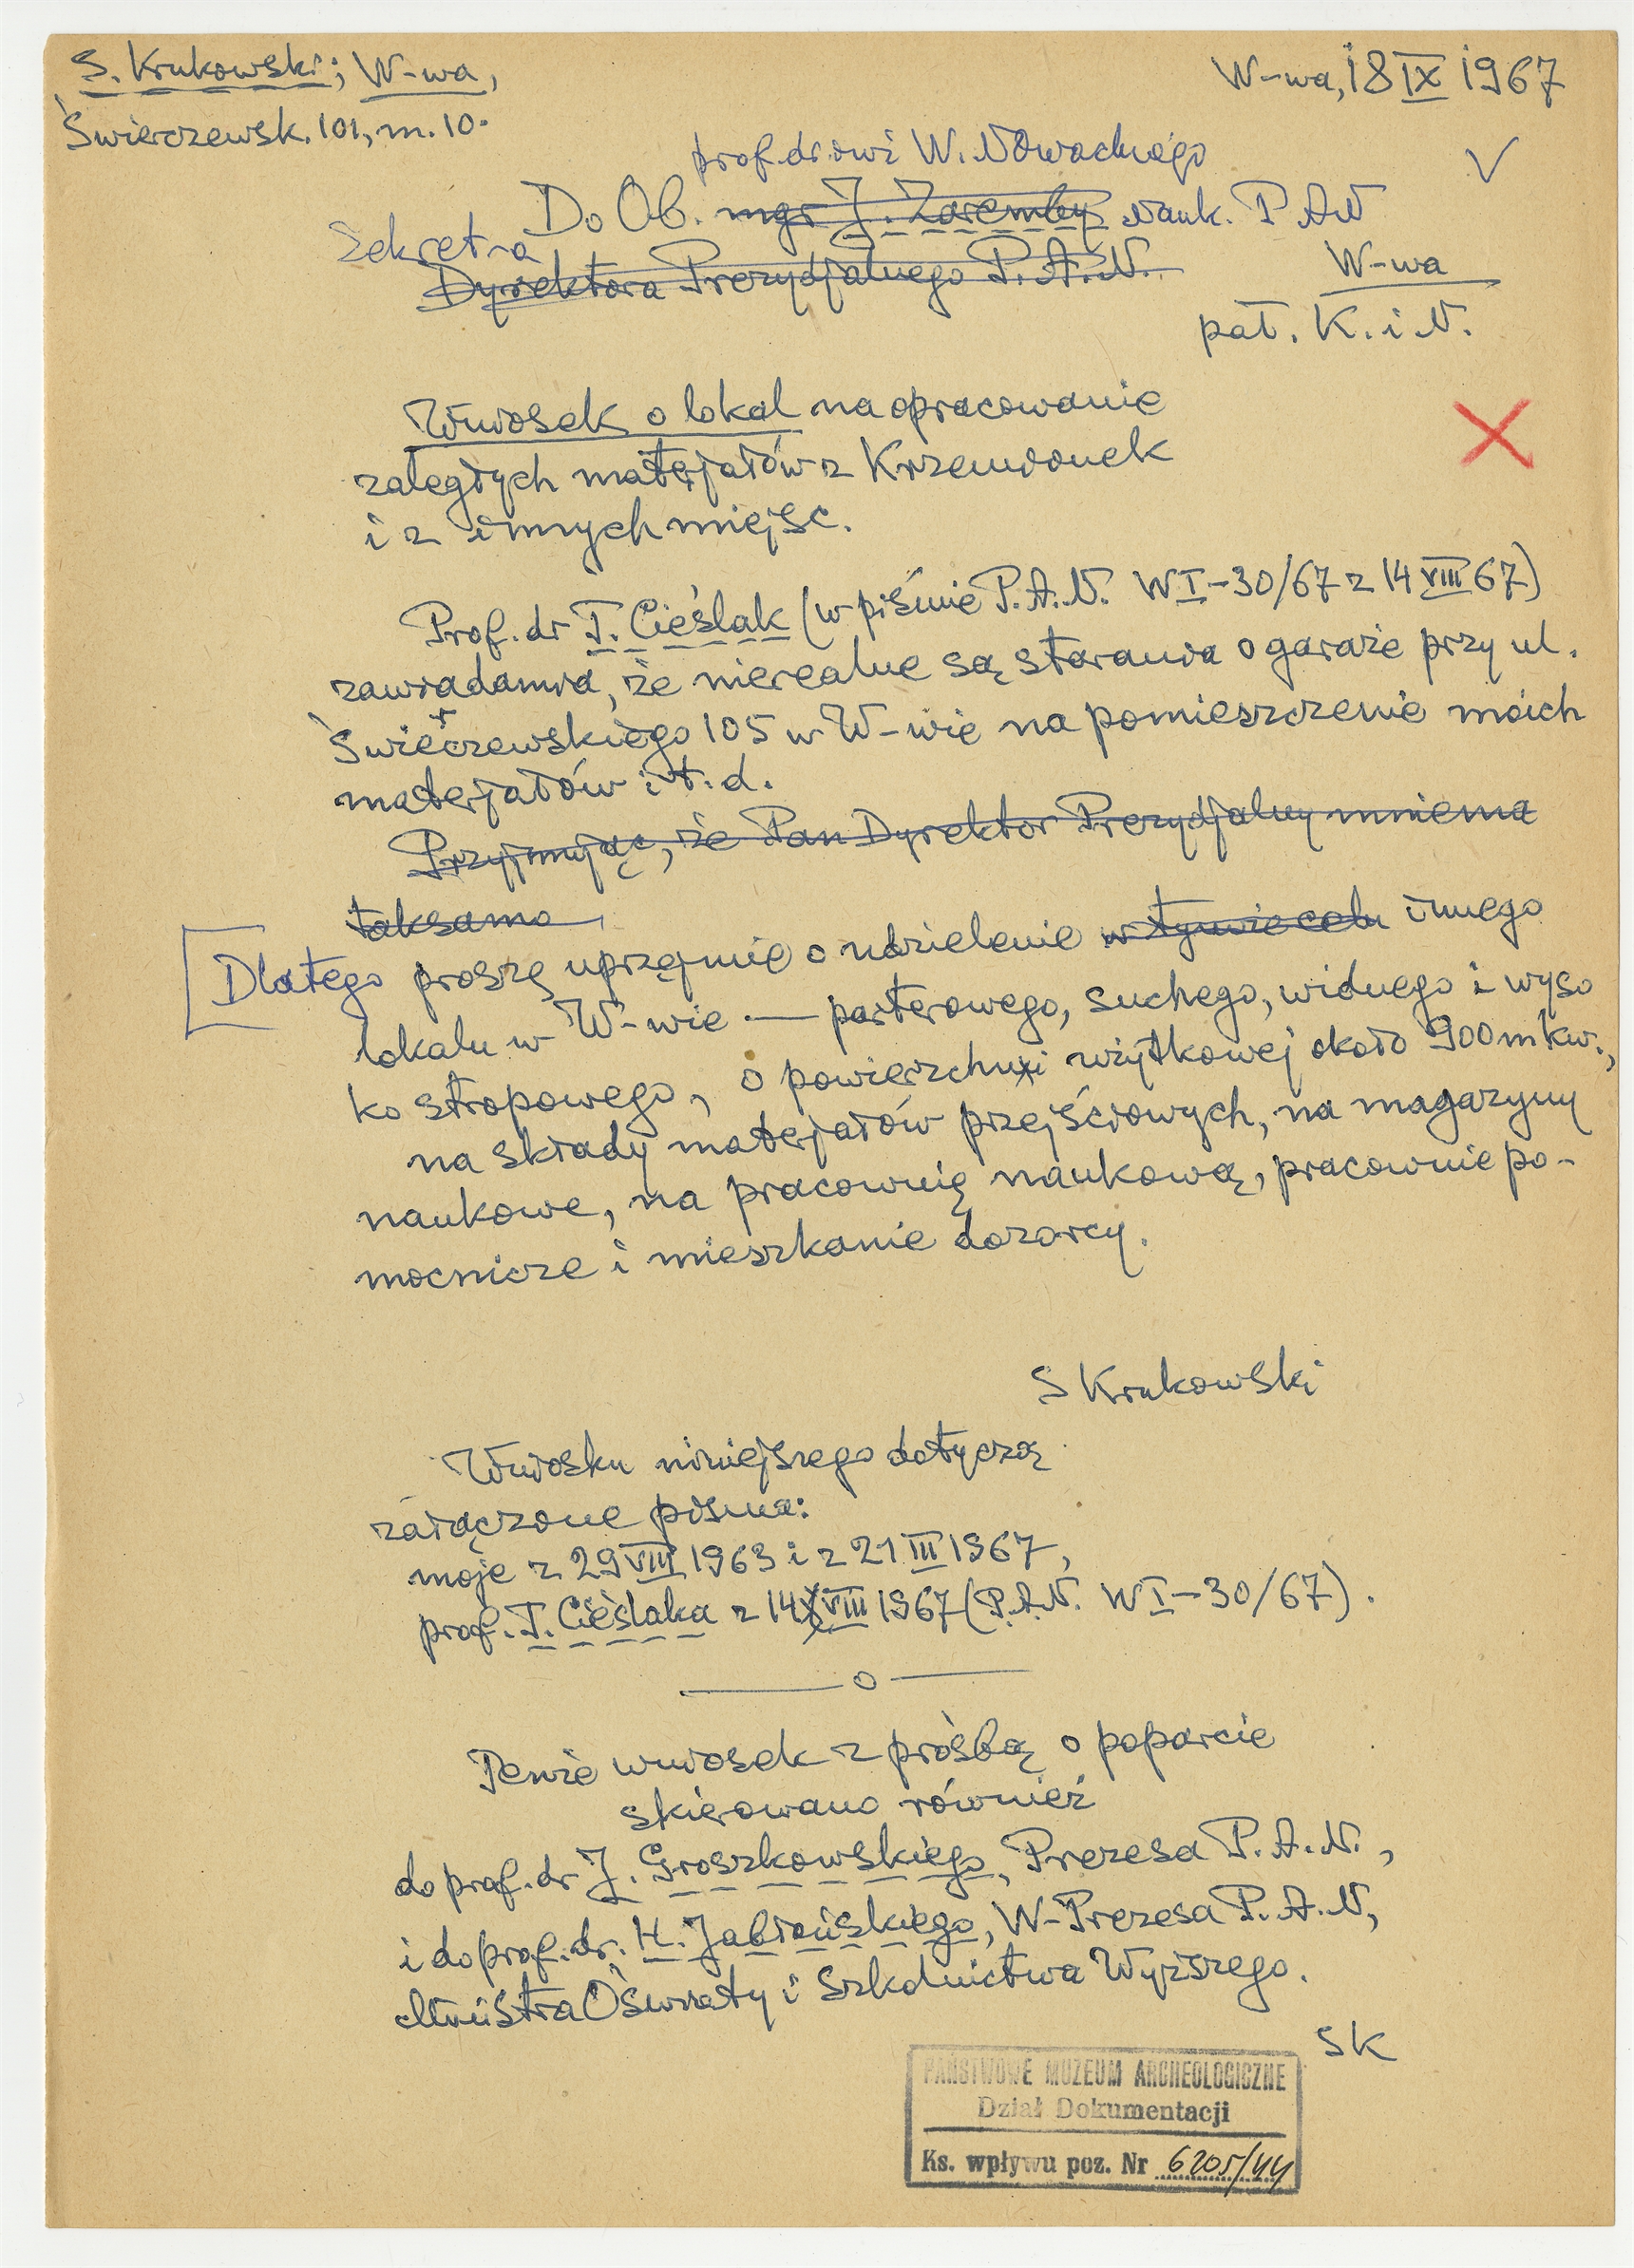 S. Krukowski; W-wa,
Świerczewsk. 101, m. 10.
W-wa, 18 IX 1967
prof. dr. owi W. Nowackiego
Do Ob. mgr J. Zaremby Nauk. P.A.N
Sekretra
Dyrektora Prezydjalnego P.A.N.
W-wa
pał. K. i N.
Wniosek o lokal na opracowanie
zaległych materjałów z Krzemionek
i z innych miejsc.
Prof. dr T. Cieślak (w piśmie P.A.N. W I-30/67 z 14 VIII 67)
zawiadamia, że nierealne są starania o garaże przy ul.
Świerczewskiego 105 w W-wie na pomieszczenie moich
materjałów i t. d.
Przyjmując, że Pan Dyrektor Prezydjalny mniema
taksamo
Dlatego proszę uprzejmie o udzielenie w tymże celu innego
lokalu w W-wie — parterowego, suchego, widnego i wyso
ko stropowego, o powierzchni użytkowej około 900 m kw.,
na składy materjałów przejściowych, na magazyny
naukowe, na pracownię naukową, pracownie po-
mocnicze i mieszkanie dozorcy.
S Krukowski
Wniosku niniejszego dotyczą
załączone pisma:
moje z 29 VIII 1963 i z 21 III 1967,
prof. T. Cieślaka z 14 VIII 1967 (P.A.N. W I-30/67).
— o —
Tenże wniosek z prośbą o poparcie
skierowano również
do prof. dr J. Groszkowskiego, Prezesa P.A.N.,
i do prof. dr. H. Jabłońskiego, W-Prezesa P.A.N,
Ministra Oświaty i Szkolnictwa Wyższego.
SK
PAŃSTWOWE MUZEUM ARCHEOLOGICZNE
Dział Dokumentacji
Ks. wpływu poz. Nr 6205/44